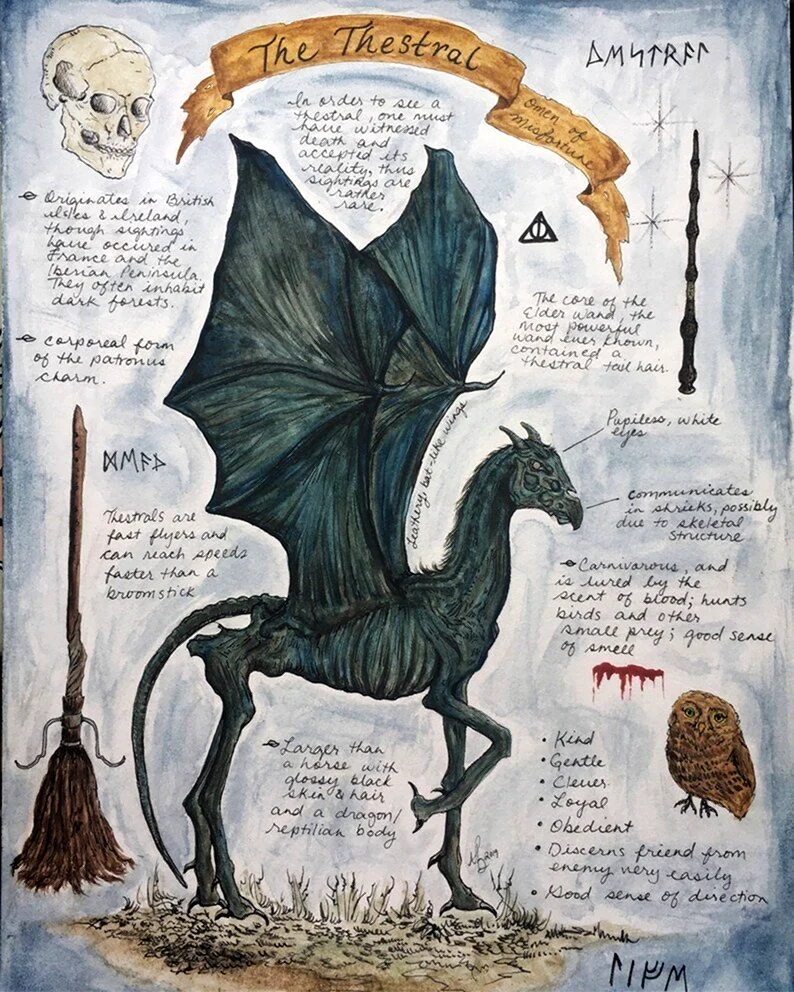 The Thestral
Omen of
Misfortune
ᚦᛖᛋᛏᚱᚨᛚ
In order to see a
thestral, one must
have witnessed
death and
accepted its
reality, thus
sightings are
rather
rare.
Originates in British
isles & Ireland,
though sightings
have occured in
France and the
Iberian Peninsula.
They often inhabit
dark forests.
corporeal form
of the patronus
charm.
The core of the
Elder Wand, the
most powerful
wand ever known,
contained a
thestral tail hair.
Leathery, bat-like wings
Pupiless, white
eyes
communicates
in shrieks, possibly
due to skeletal
structure
ᛞᛖᚨᚦ
Thestrals are
fast flyers and
can reach speeds
faster than a
broomstick
Carnivarous, and
is lured by the
scent of blood; hunts
birds and other
small prey; good sense
of smell
Larger than
a horse with
glossy black
skin & hair
and a dragon/
reptilian body
• Kind
• Gentle
• Clever
• Loyal
• Obedient
• Discerns friend from
enemy very easily
• Good sense of direction
ᛚᛁᚠᛖ